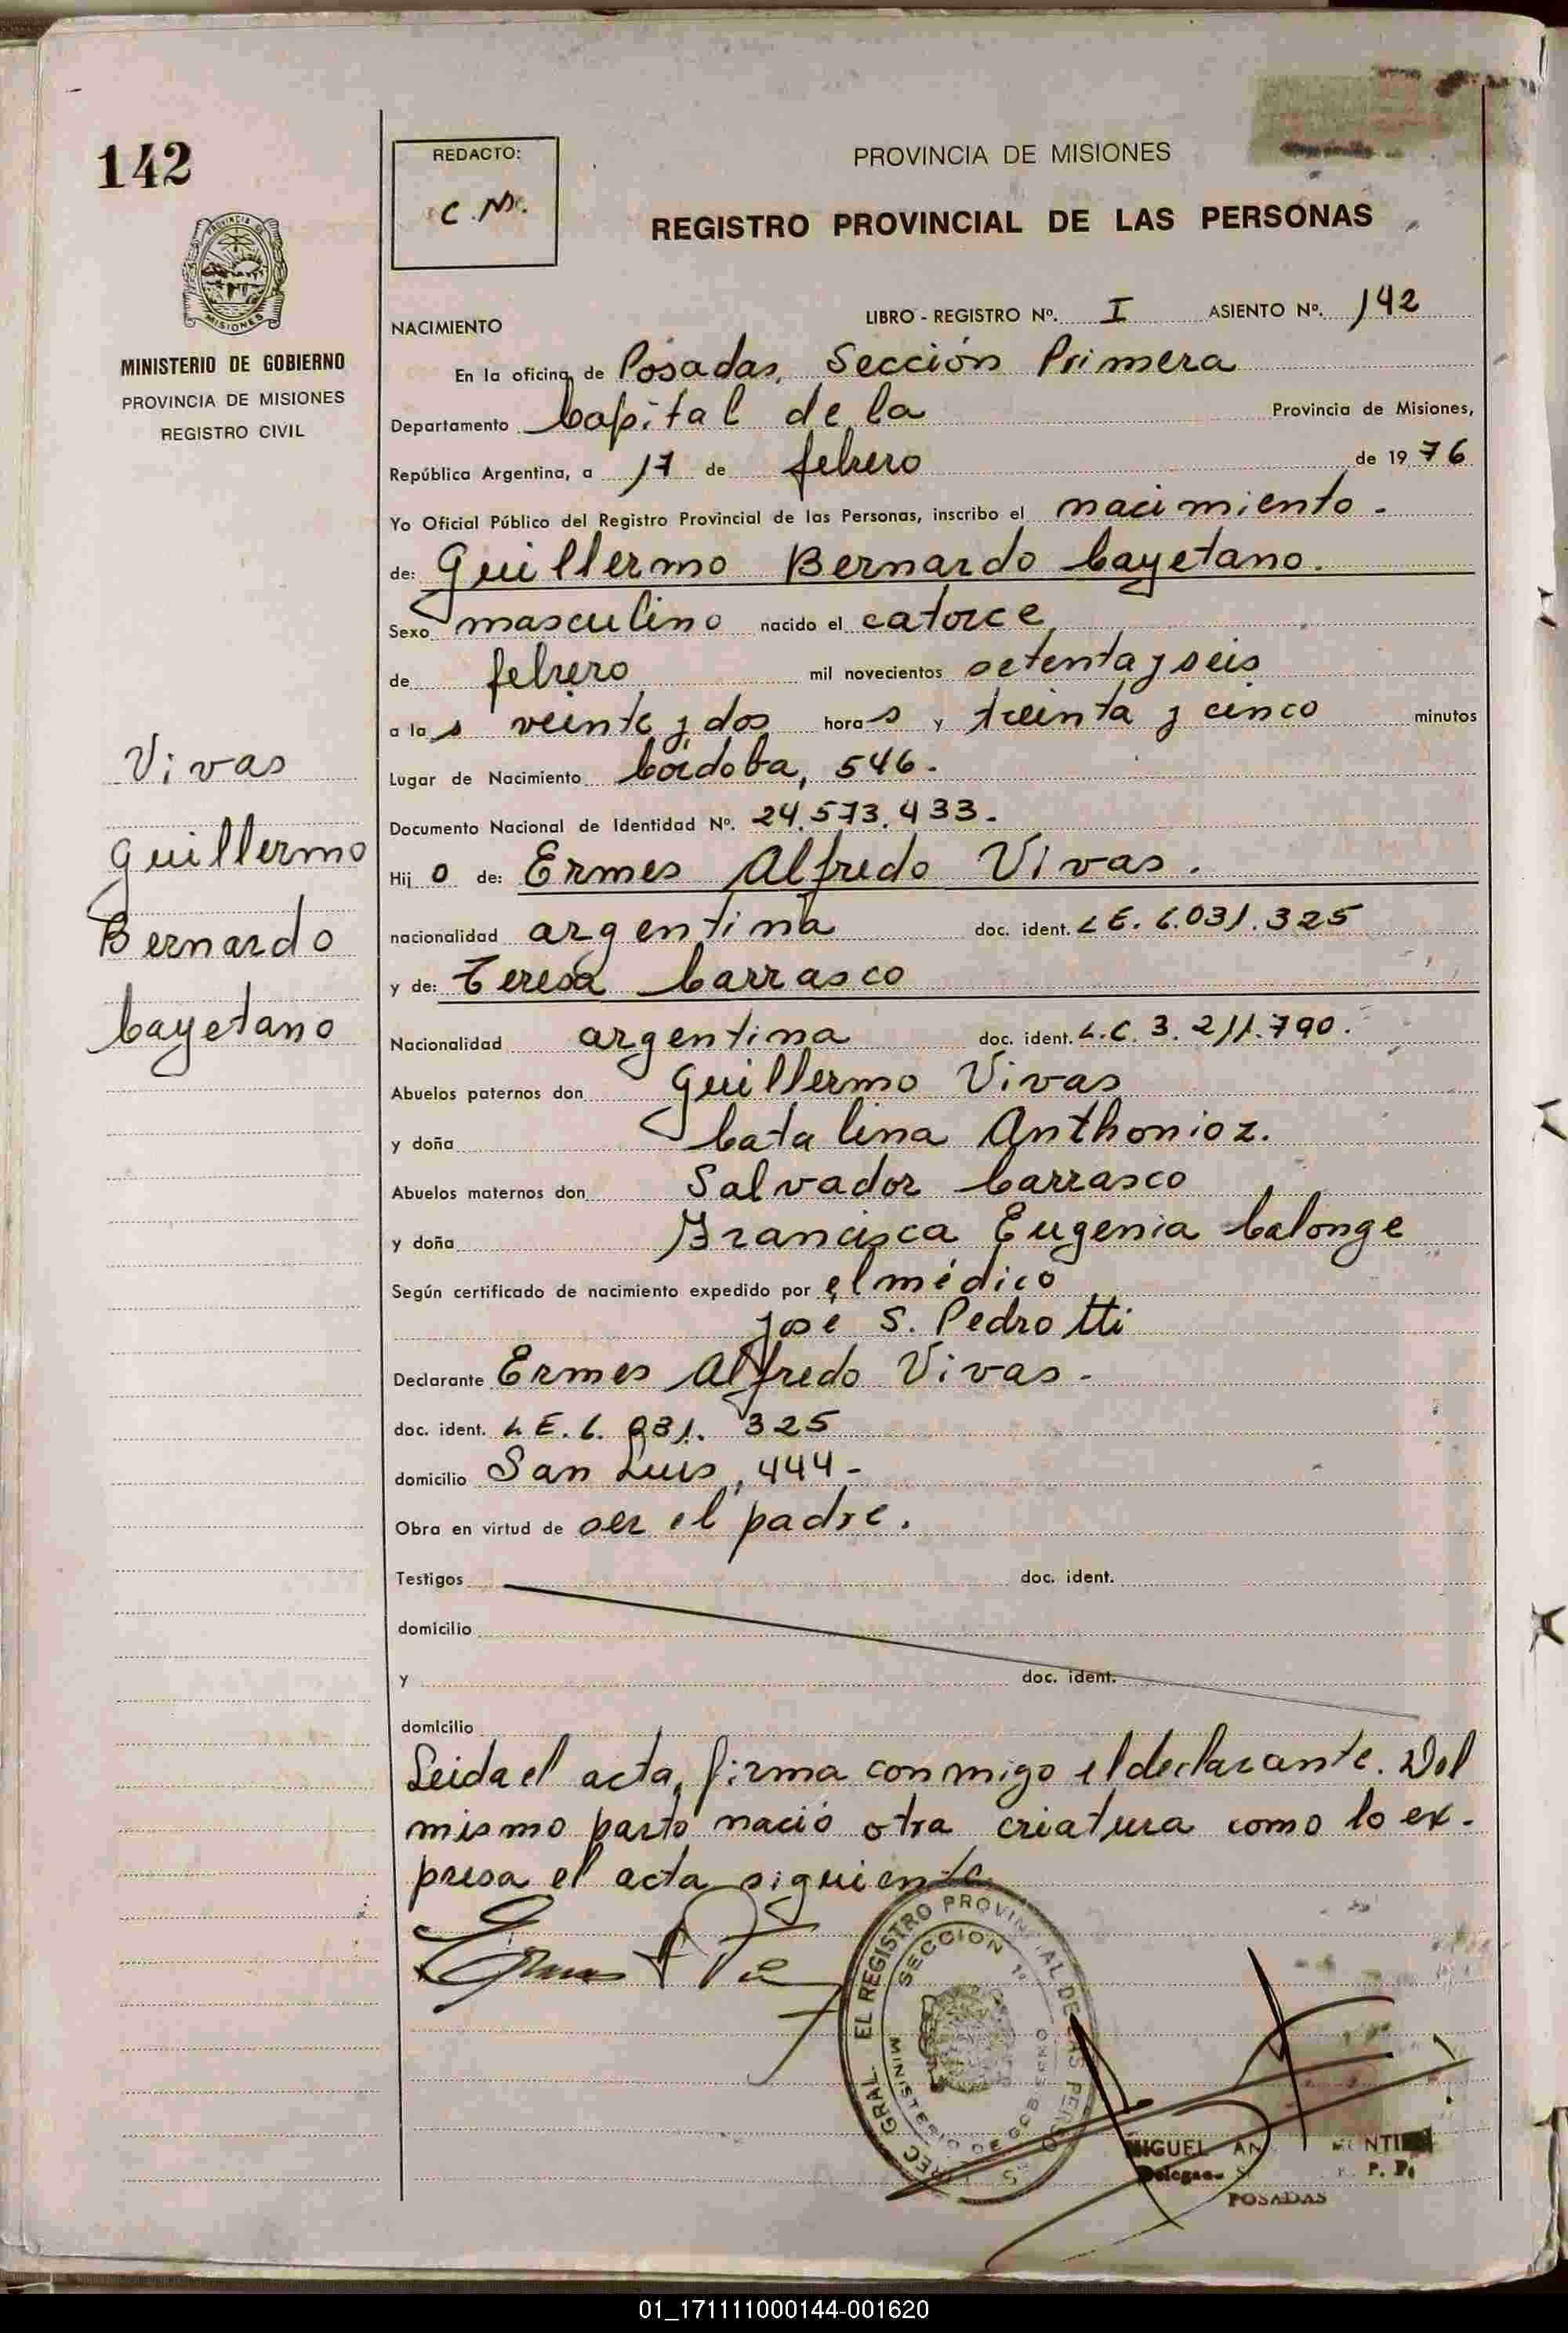 142
REDACTO:
C.M.
PROVINCIA DE MISIONES
REGISTRO PROVINCIAL DE LAS PERSONAS
PROVINCIA DE
MISIONES
MINISTERIO DE GOBIERNO
PROVINCIA DE MISIONES
REGISTRO CIVIL
Vivas
Guillermo
Bernardo
Cayetano
NACIMIENTO LIBRO - REGISTRO Nº. I ASIENTO Nº. 142
En la oficina de Posadas, Sección Primera
Departamento Capital de la Provincia de Misiones,
República Argentina, a 17 de febrero de 1976
Yo Oficial Público del Registro Provincial de las Personas, inscribo el nacimiento.
de: Guillermo Bernardo Cayetano.
Sexo masculino nacido el catorce
de febrero mil novecientos setenta y seis
a las veinte y dos horas y treinta y cinco minutos
Lugar de Nacimiento Córdoba, 546.
Documento Nacional de Identidad Nº. 24.573.433.
Hijo de: Ermes Alfredo Vivas.
nacionalidad argentina doc. ident. LE. 6.031.325
y de: Teresa Carrasco
Nacionalidad argentina doc. ident. L.C. 3.211.790.
Abuelos paternos don Guillermo Vivas
y doña Catalina Anthonioz.
Abuelos maternos don Salvador Carrasco
y doña Francisca Eugenia Calonge
Según certificado de nacimiento expedido por el médico
José S. Pedrotti
Declarante Ermes Alfredo Vivas.
doc. ident. LE. 6.031.325
domicilio San Luis, 444-
Obra en virtud de ser el padre.
Testigos doc. ident.
domicilio
y doc. ident.
domicilio
Leida el acta, firma conmigo el declarante. Del
mismo parto nació otra criatura como lo ex-
presa el acta siguiente
EL REGISTRO PROVINCIAL DE LAS PERSONAS
SECCION 1ª
MINISTERIO DE GOBIERNO
MIGUEL
POSADAS
01_171111000144-001620